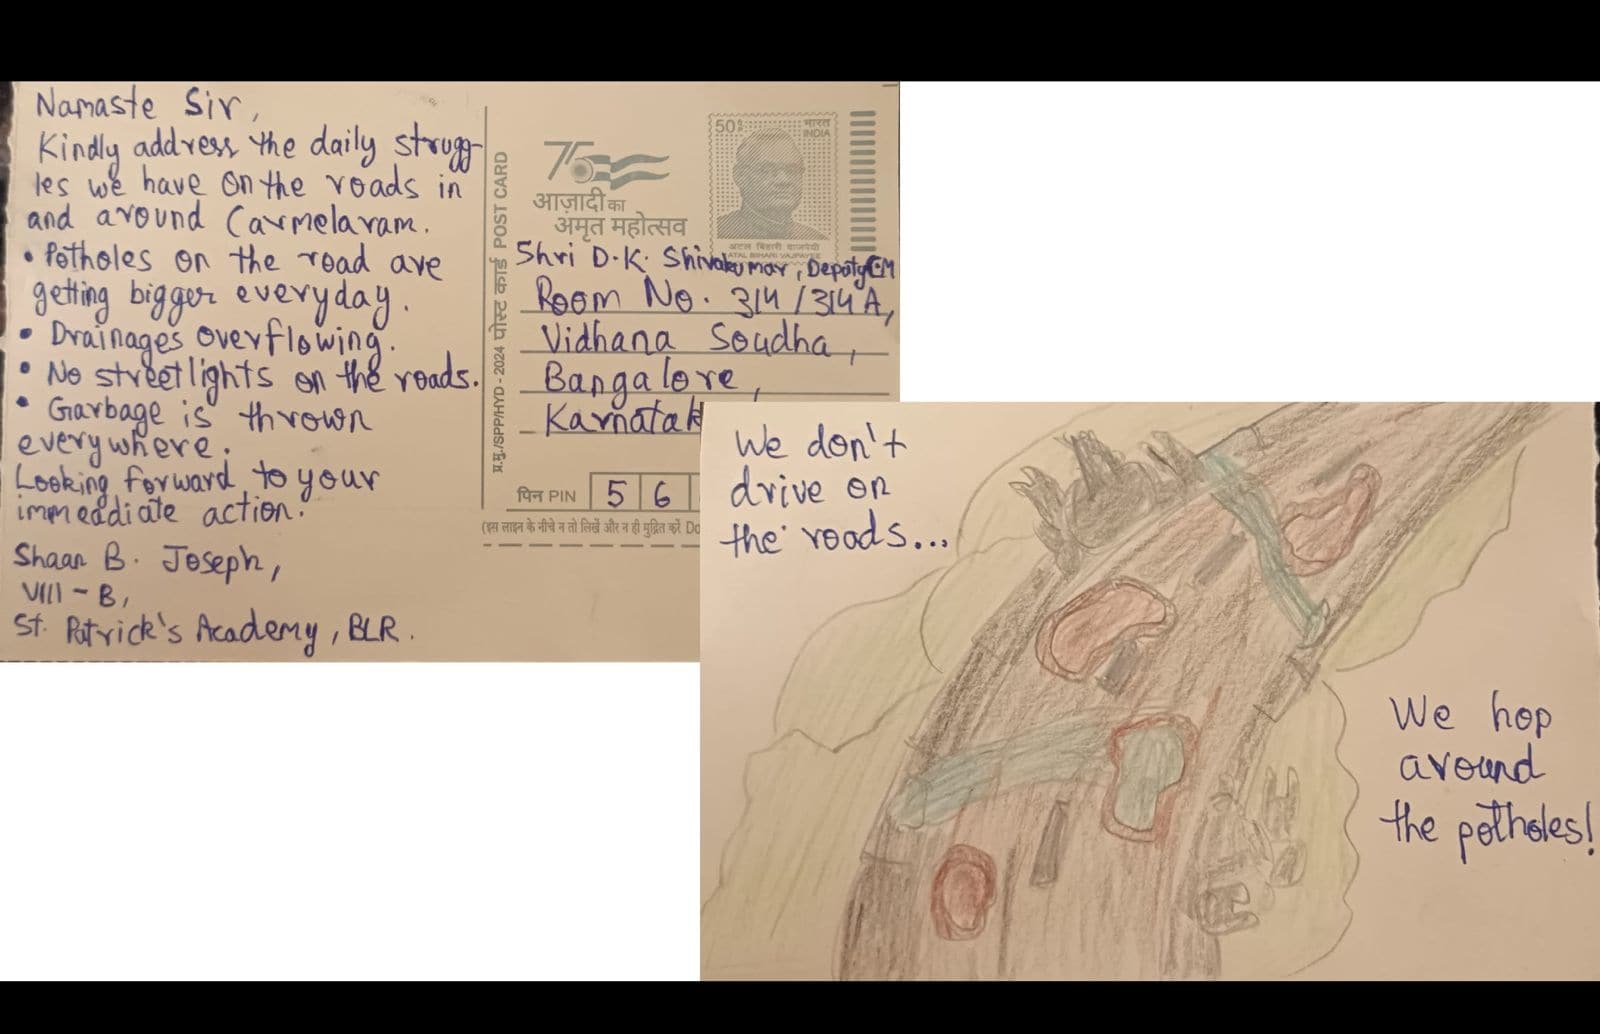 Namaste Sir,
Kindly address the daily strugg-
les we have on the roads in
and around Carmelaram.
• Potholes on the road are
getting bigger everyday.
• Drainages overflowing.
• No streetlights on the roads.
• Garbage is thrown
everywhere.
Looking forward to your
immediate action.
Shaan B. Joseph,
VIII - B,
St. Patrick's Academy, BLR.
प्र.मु./SPP/HYD - 2024 पोस्ट कार्ड POST CARD
75
आज़ादी का
अमृत महोत्सव
50
भारत
INDIA
अटल बिहारी वाजपेयी
ATAL BIHARI VAJPAYEE
Shri D.K. Shivakumar, Deputy CM
Room No. 314 / 314 A,
Vidhana Soudha,
Bangalore,
Karnatak
पिन PIN 5 6
(इस लाइन के नीचे न तो लिखें और न ही मुद्रित करें Do
We don't
drive on
the roads...
We hop
around
the potholes!